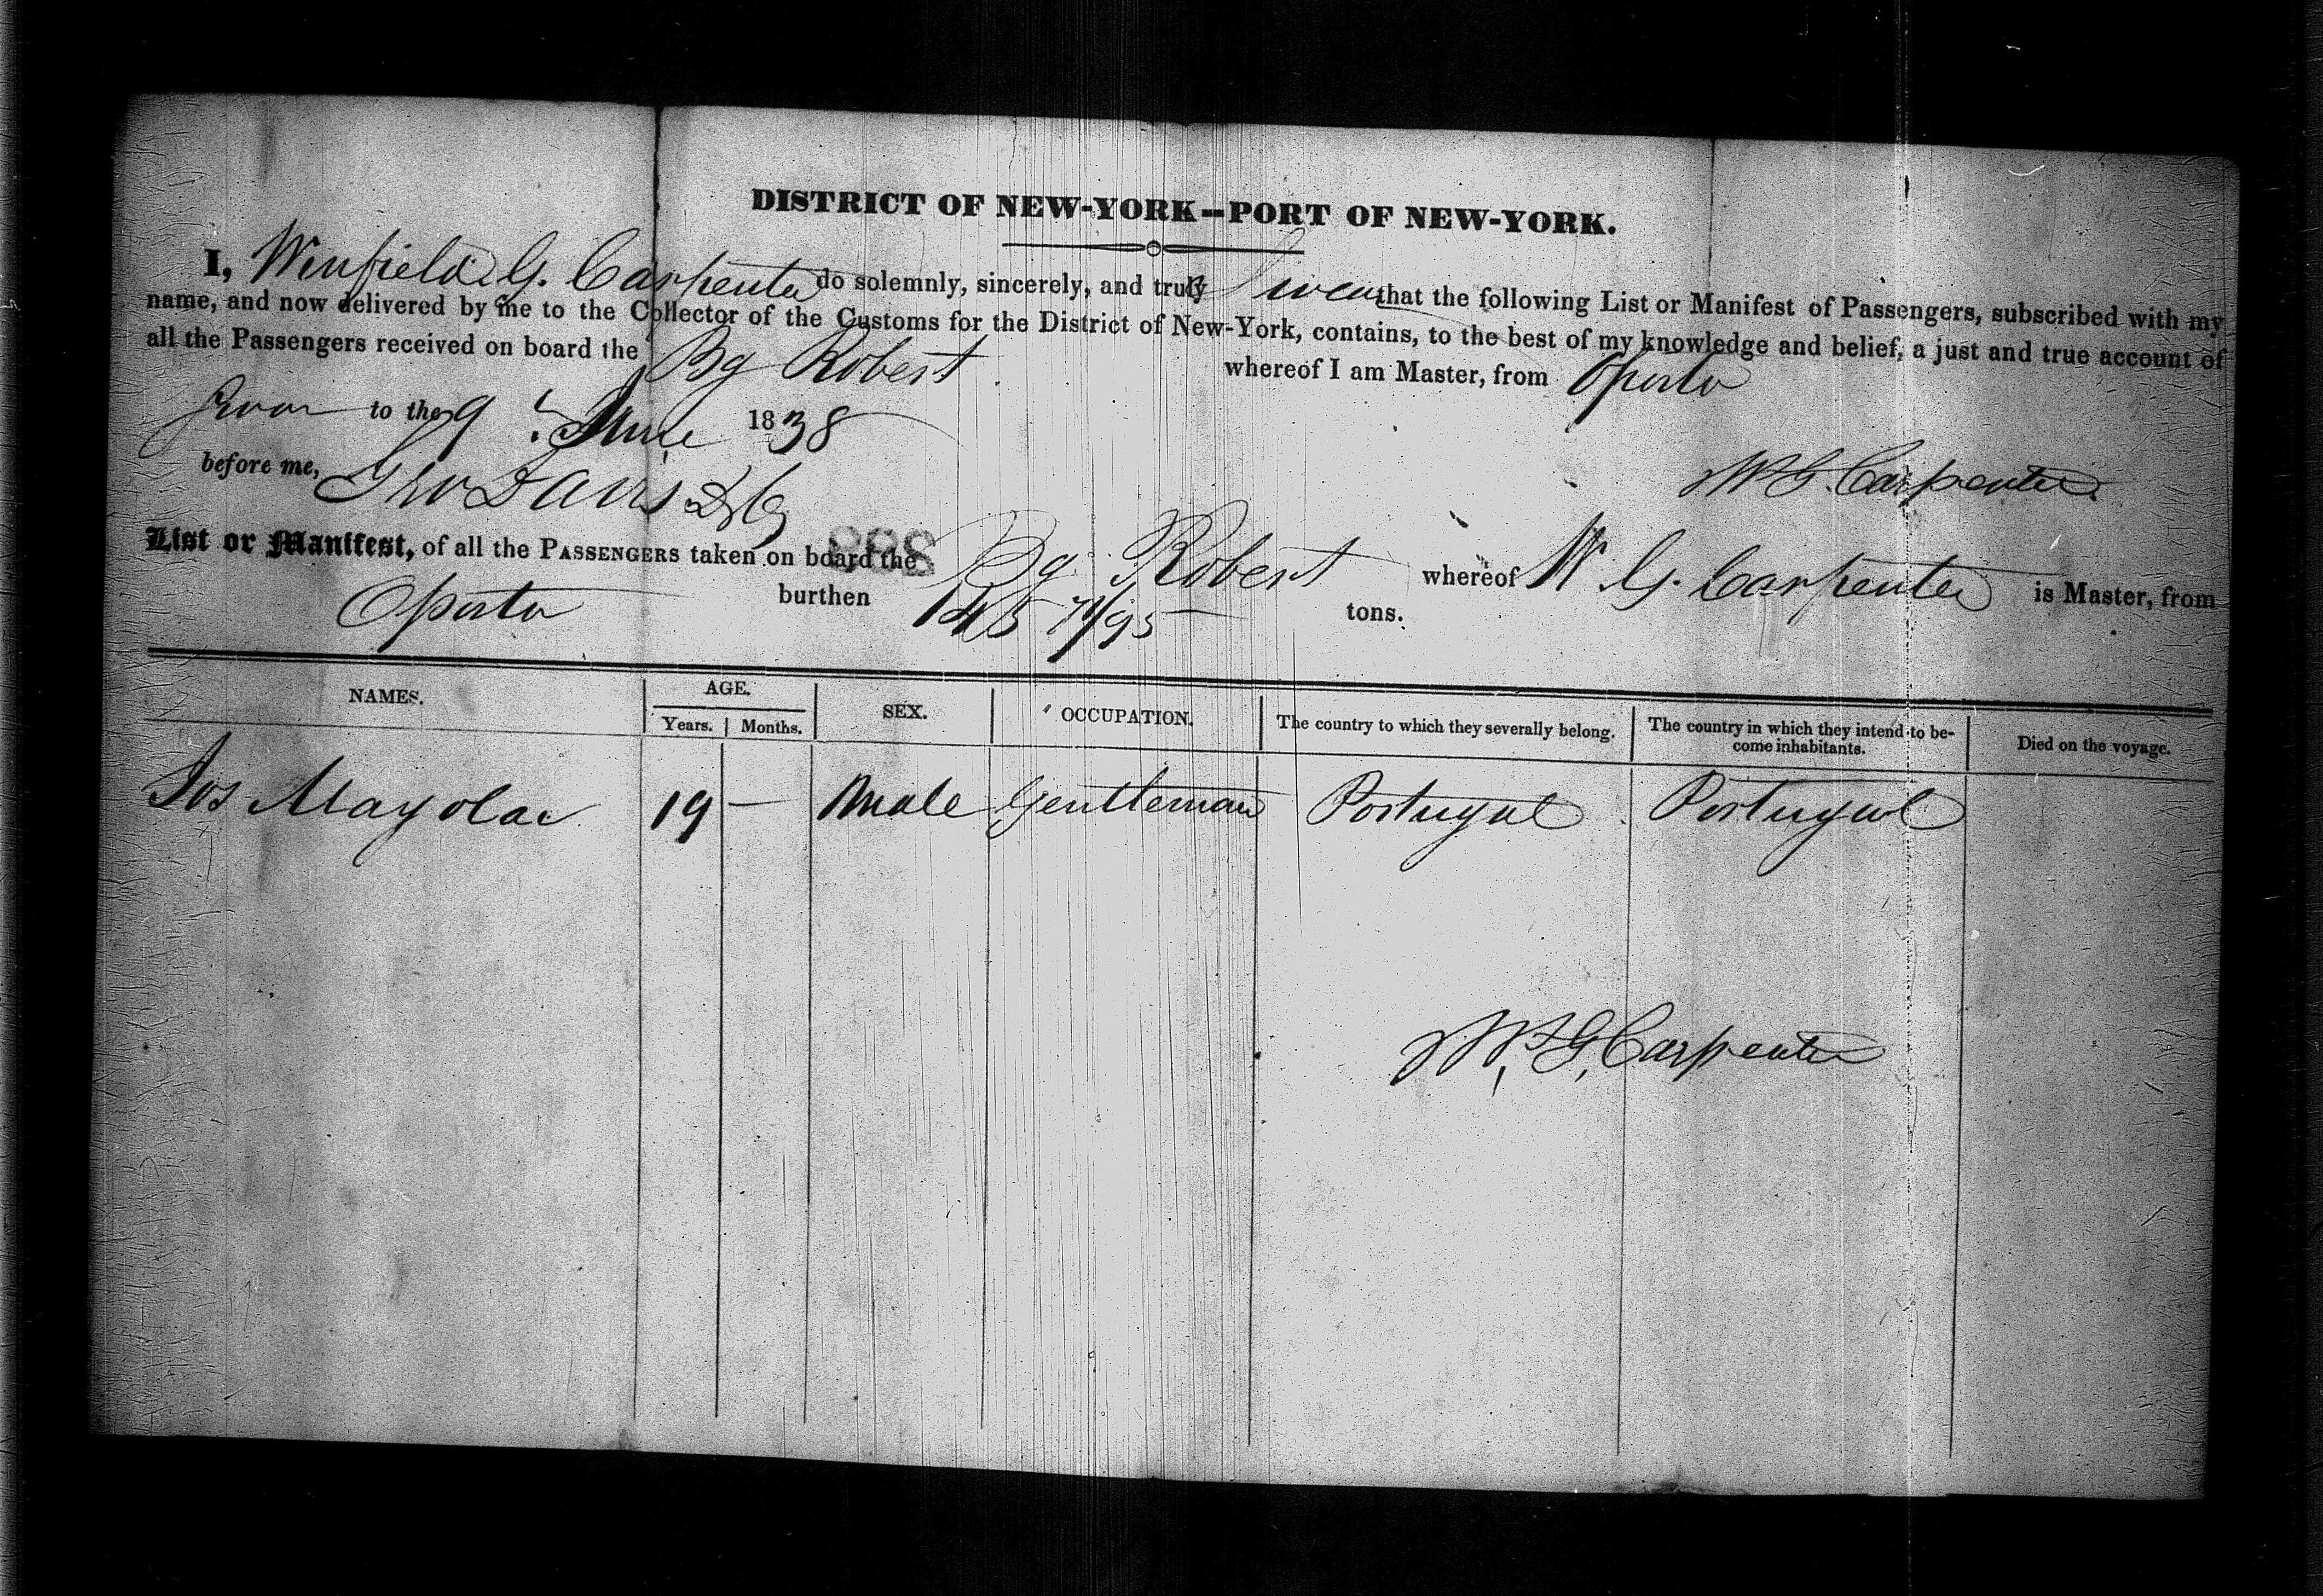 DISTRICT OF NEW-YORK--PORT OF NEW-YORK.
I, Winfield G. Carpenter do solemnly, sincerely, and truly Swear that the following List or Manifest of Passengers, subscribed with my
name, and now delivered by me to the Collector of the Customs for the District of New-York, contains, to the best of my knowledge and belief, a just and true account of
all the Passengers received on board the Bg Robert whereof I am Master, from Oporto
to the 9 June 1838
W G. Carpenter
before me, Geo Davis
888
List or Manifest, of all the PASSENGERS taken on board the Bg Robert whereof W. G. Carpenter is Master, from
Oporto burthen 145 71/95 tons.
NAMES. AGE. SEX. OCCUPATION. The country to which they severally belong. The country in which they intend to be-
come inhabitants. Died on the voyage.
Years. Months.
Jos 19 — Male Gentleman Portugal Portugal
W. G. Carpenter